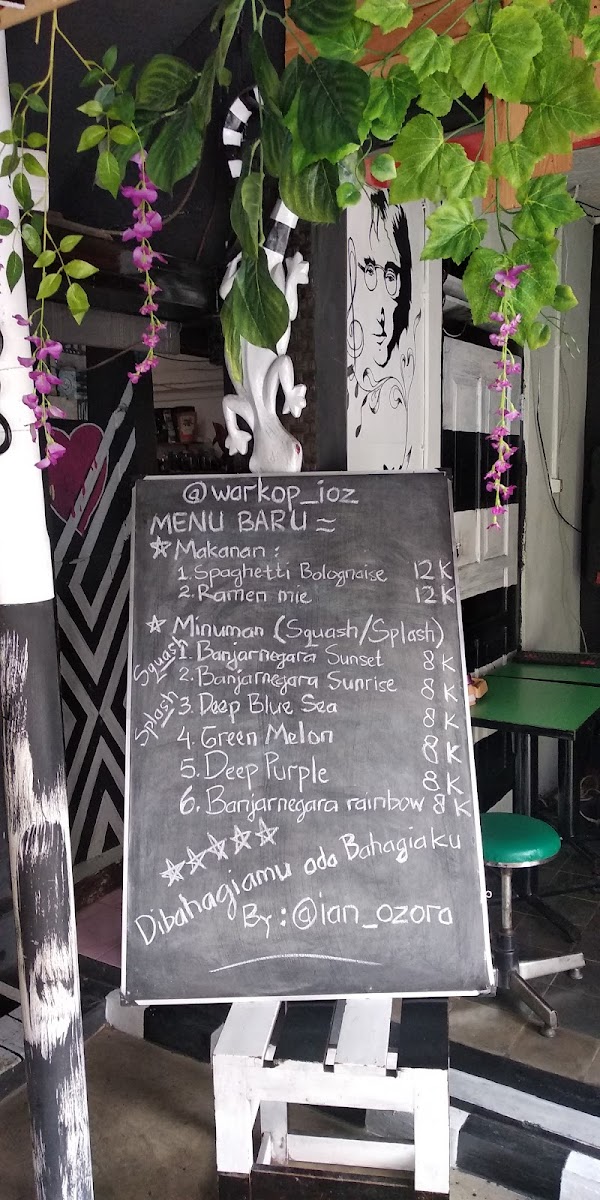 @warkop_ioz
MENU BARU =
☆ Makanan :
1. Spaghetti Bolognaise 12K
2. Ramen mie 12K
☆ Minuman (Squash/Splash)
Squash 1. Banjarnegara Sunset 8K
2. Banjarnegara Sunrise 8K
Splash 3. Deep Blue Sea 8K
4. Green Melon 8K
5. Deep Purple 8K
6. Banjarnegara rainbow 8K
☆☆☆☆☆
Dibahagiamu ada Bahagiaku
By : @ian_ozora